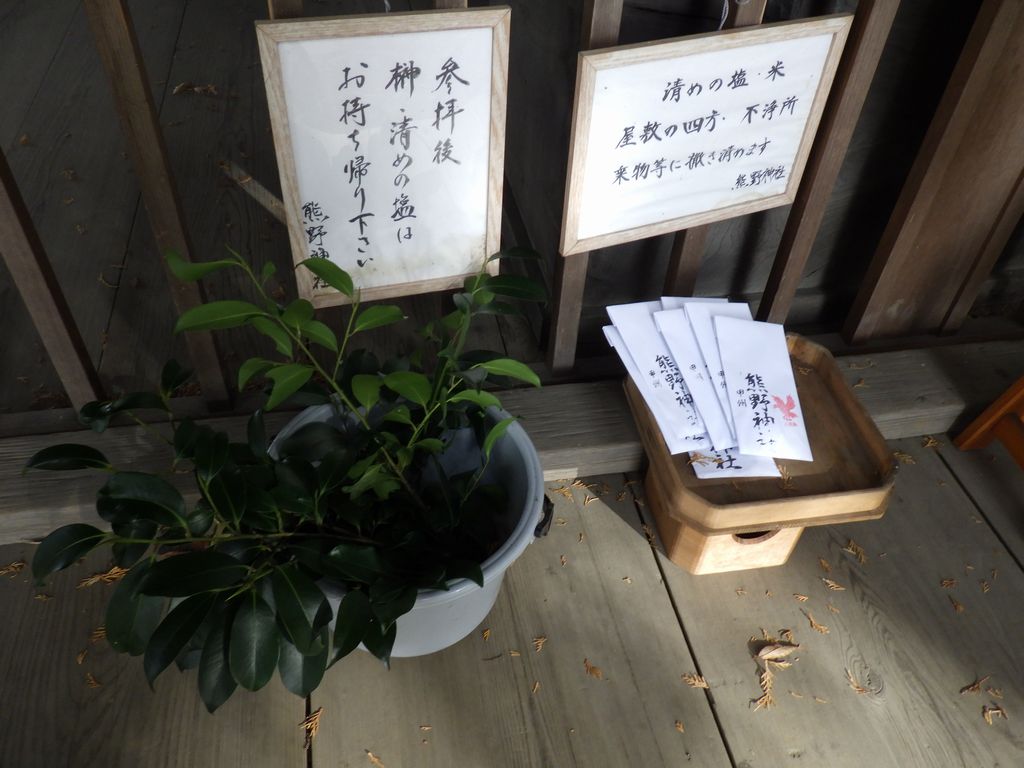 参拝後
榊・清めの塩は
お持ち帰り下さい
熊野神社
清めの塩・米
屋敷の四方・不浄所
乗物等に撒き清めます
熊野神社
甲州
熊野神
甲州
熊野神社
社